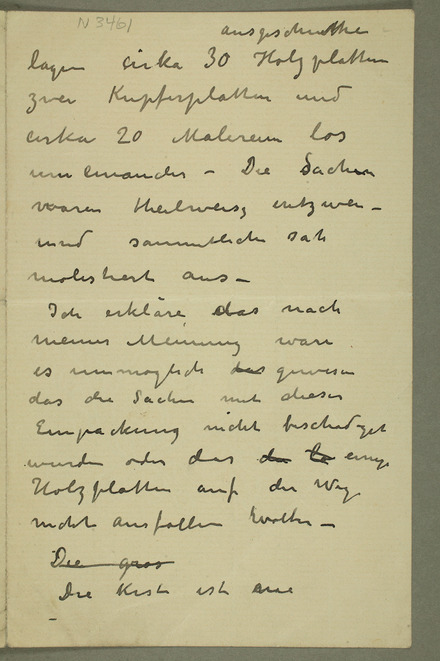 N 3461
ausgeschnittne
lagen cirka 30 Holzplatten
zwei Kupferplatten und
cirka 20 Malereien los
um einander – Die Sachen
waren theilweise entzwei –
und sammtliche sah
molestiert aus –
Ich erkläre das nach
meiner Meinung ware
es unmoglich das gewesen
das die Sachen mit dieser
Einpackung nicht beschadiget
wurden oder das die einige
Holzplatten auf der Weg
nicht ausfallen
Die gros
Die Kiste ist